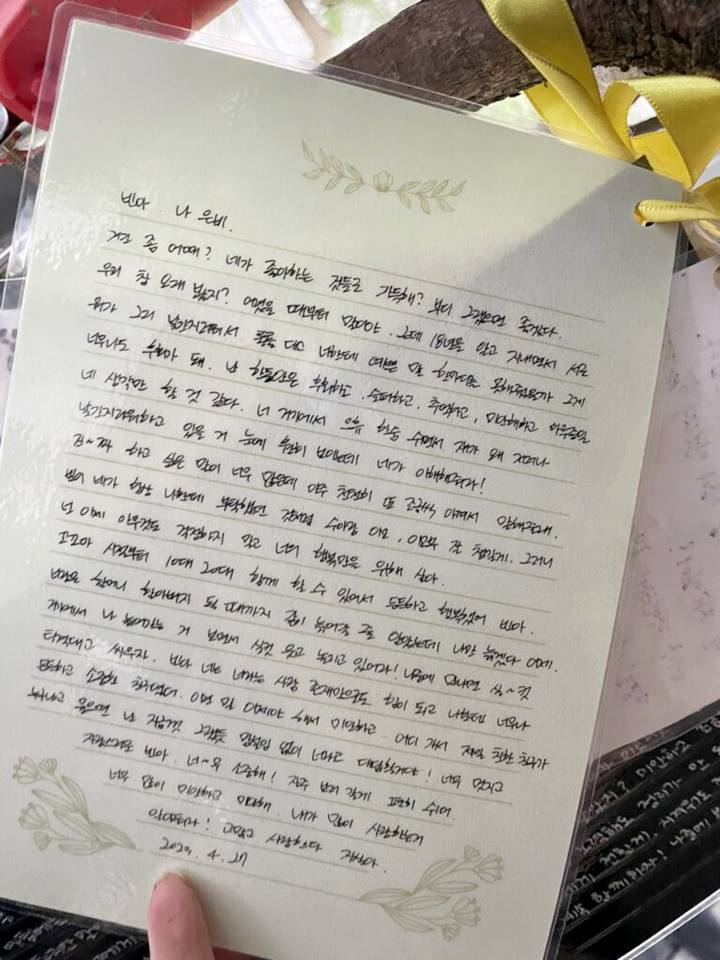 빈아. 나 은비.
거긴 좀 어때? 네가 좋아하는 것들로 가득해? 부디 그랬으면 좋겠다.
우리 참 오래 봤지? 어렸을 때부터 말이야. 근데 18년을 알고 지내면서 서로
뭐가 그리 낯간지러워서 너한테 예쁜 말 한마디를 못해줬을까 그게
너무나도 후회가 돼. 난 한동안은 후회하고, 슬퍼하고, 추억하고, 미안해하고 하루종일
네 생각만 할 것 같다. 너 거기에서 으휴 한숨 쉬면서 쟤가 왜 저러냐
낯간지러워하고 있을 거 눈에 훤히 보이는데 네가 이해해줘라!
진~짜 하고 싶은 말이 너무 많은데 아주 천천히 또 조금씩 와서 말해줄게.
네가 항상 나한테 부탁했던 것처럼 수아랑 이모, 이모부 잘 챙길게. 그러니
넌 이제 아무것도 걱정하지 말고 너의 행복만을 위해 살아.
꼬꼬마 시절부터 10대 20대 함께 할 수 있어서 든든하고 행복했어 빈아.
할머니 할아버지 될 때까지 같이 늙어갈 줄 알았는데 나만 늙겠다 이제.
거기에서 나 늙어가는 거 보면서 실컷 웃고 놀리고 있어라! 나중에 만나면 실~컷
티격대고 싸우자. 빈아 너는 너라는 사람 존재만으로도 힘이 되고 나한테 너무나
든든하고 소중한 친구였어. 이런 말 이제야 해서 미안하고. 어디 가서 제일 친한 친구가
누구냐고 물으면 난 지금껏 그랬듯 망설임 없이 너라고 대답할거다! 너무 멋지고
자랑스러운 빈아. 너~무 소중해! 자주 보러 갈게 편히 쉬어.
너무 많이 미안하고 미안해. 내가 많이 사랑한거
알아줘라! 고맙고 사랑한다 자식아.
2023. 4. 27